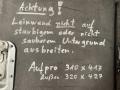 Achtung!
Leinwand nicht auf
staubigem oder nicht
sauberem Untergrund
ausbreiten.
Aufpro 310 x 417
außen 320 x 427